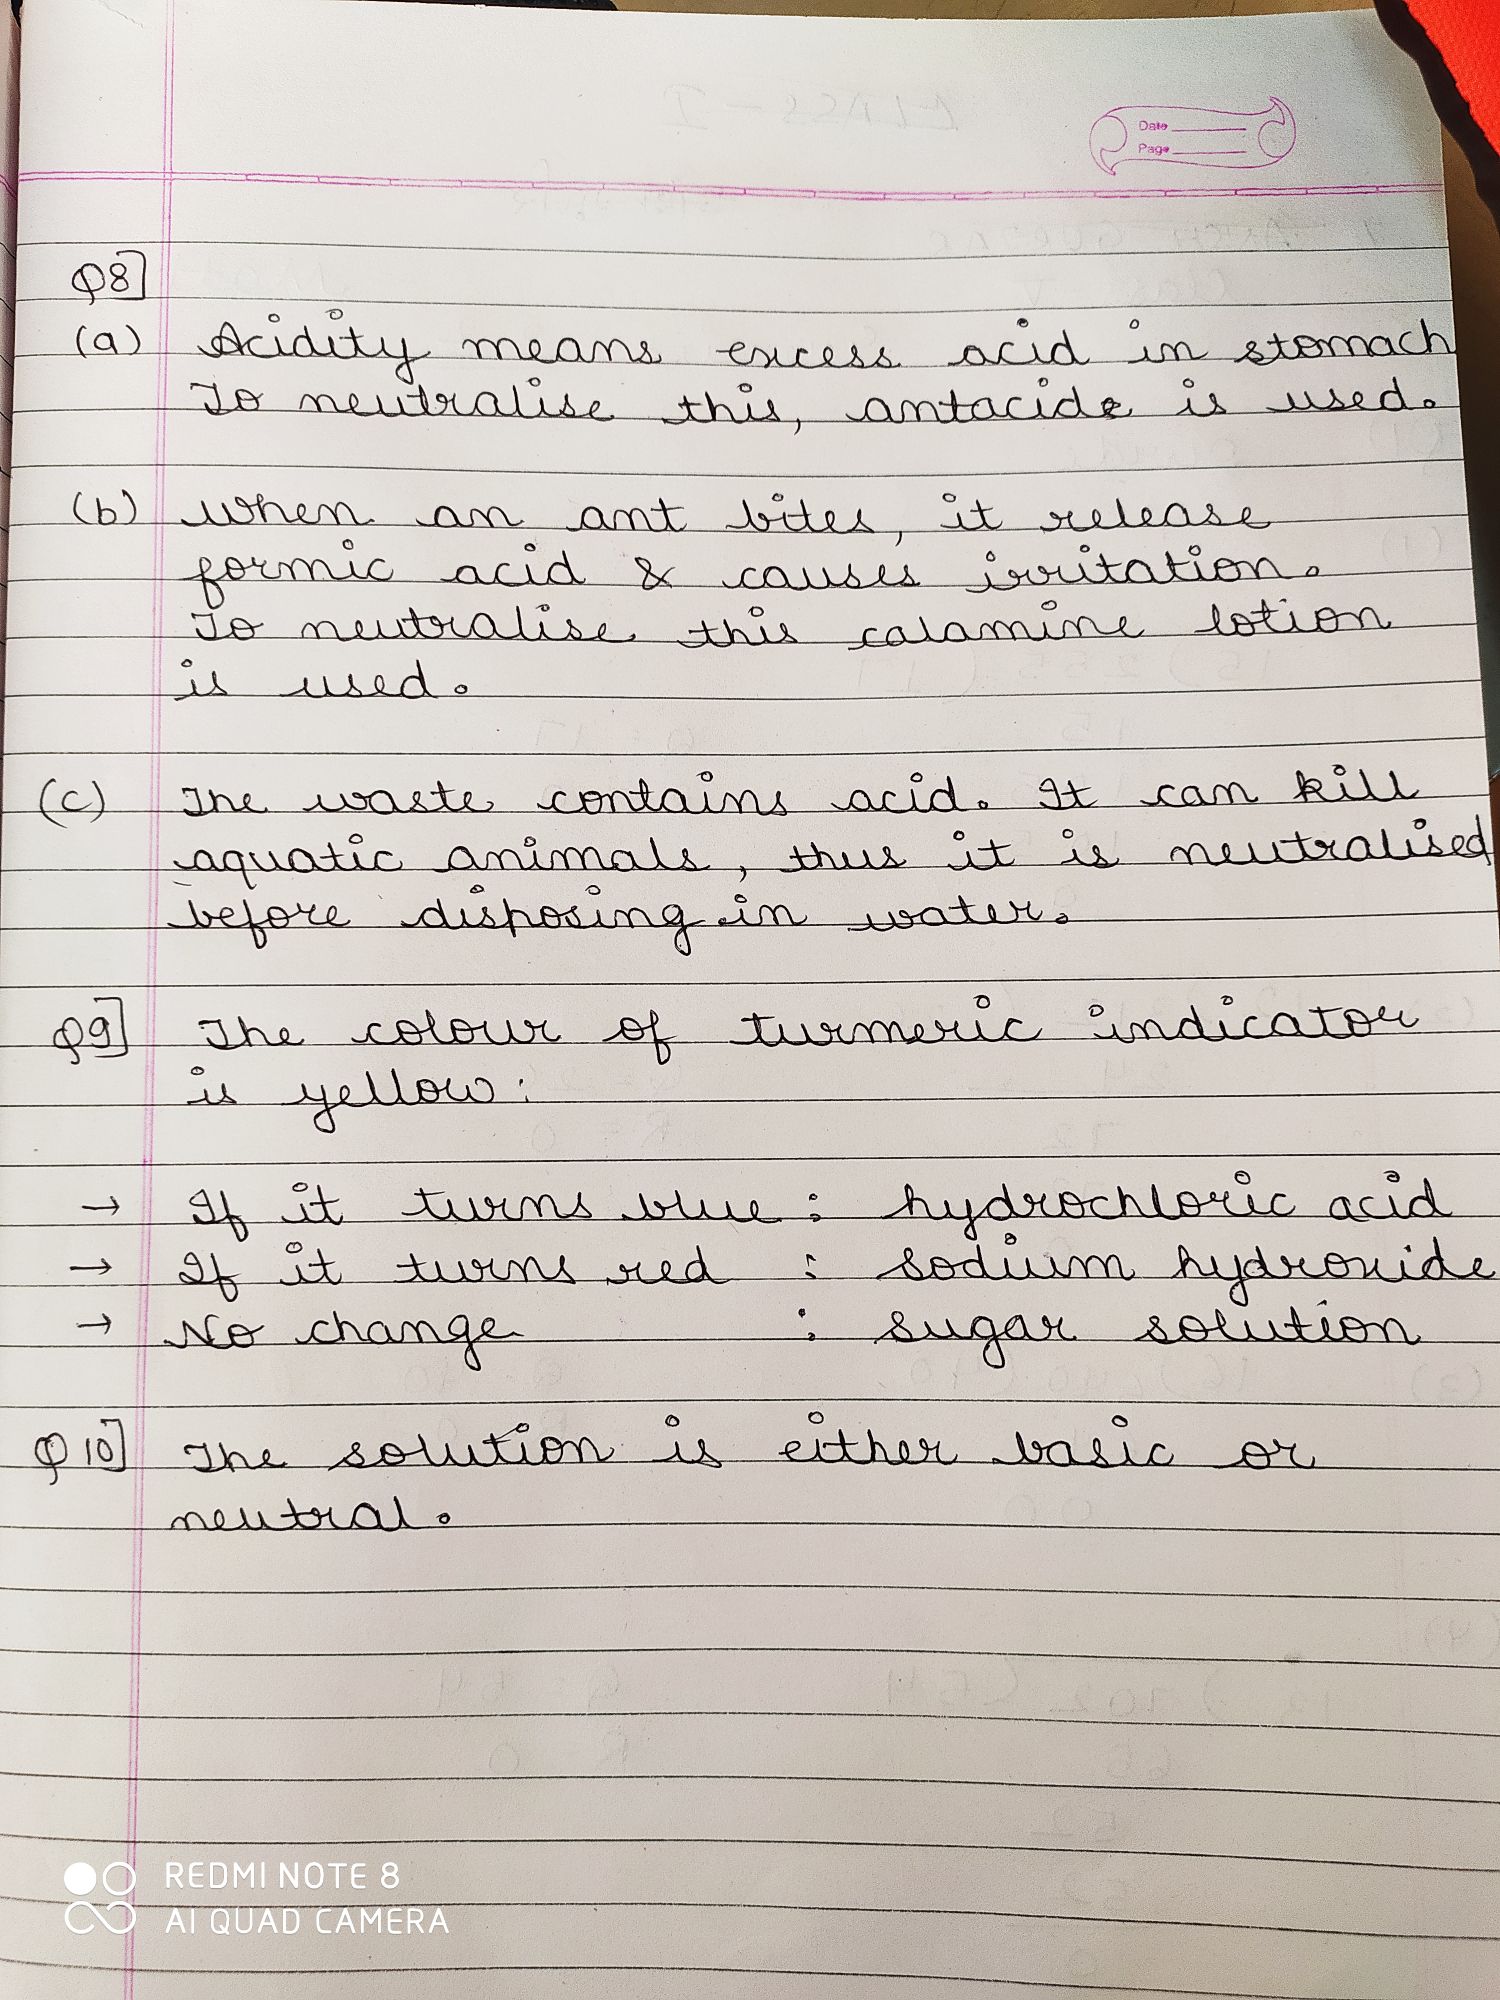 Date
Page
Q8]
(a) Acidity means excess acid in stomach
To neutralise this, antacide is used.
(b) When an ant bites, it release
formic acid & causes irritation.
To neutralise this calamine lotion
is used.
(c) The waste contains acid. It can kill
aquatic animals, thus it is neutralised
before disposing in water.
Q9] The colour of turmeric indicator
is yellow:
→ If it turns blue : hydrochloric acid
→ If it turns red : sodium hydroxide
→ No change : sugar solution
Q10] The solution is either basic or
neutral.
REDMI NOTE 8
AI QUAD CAMERA